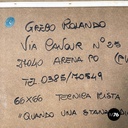 GEZBO ROLANDO
VIA CAVOUR N° 25
27040 ARENA PO (PV
TEL 0385/70549
66x66 TECNICA MISTA
"QUANDO UNA STANZA